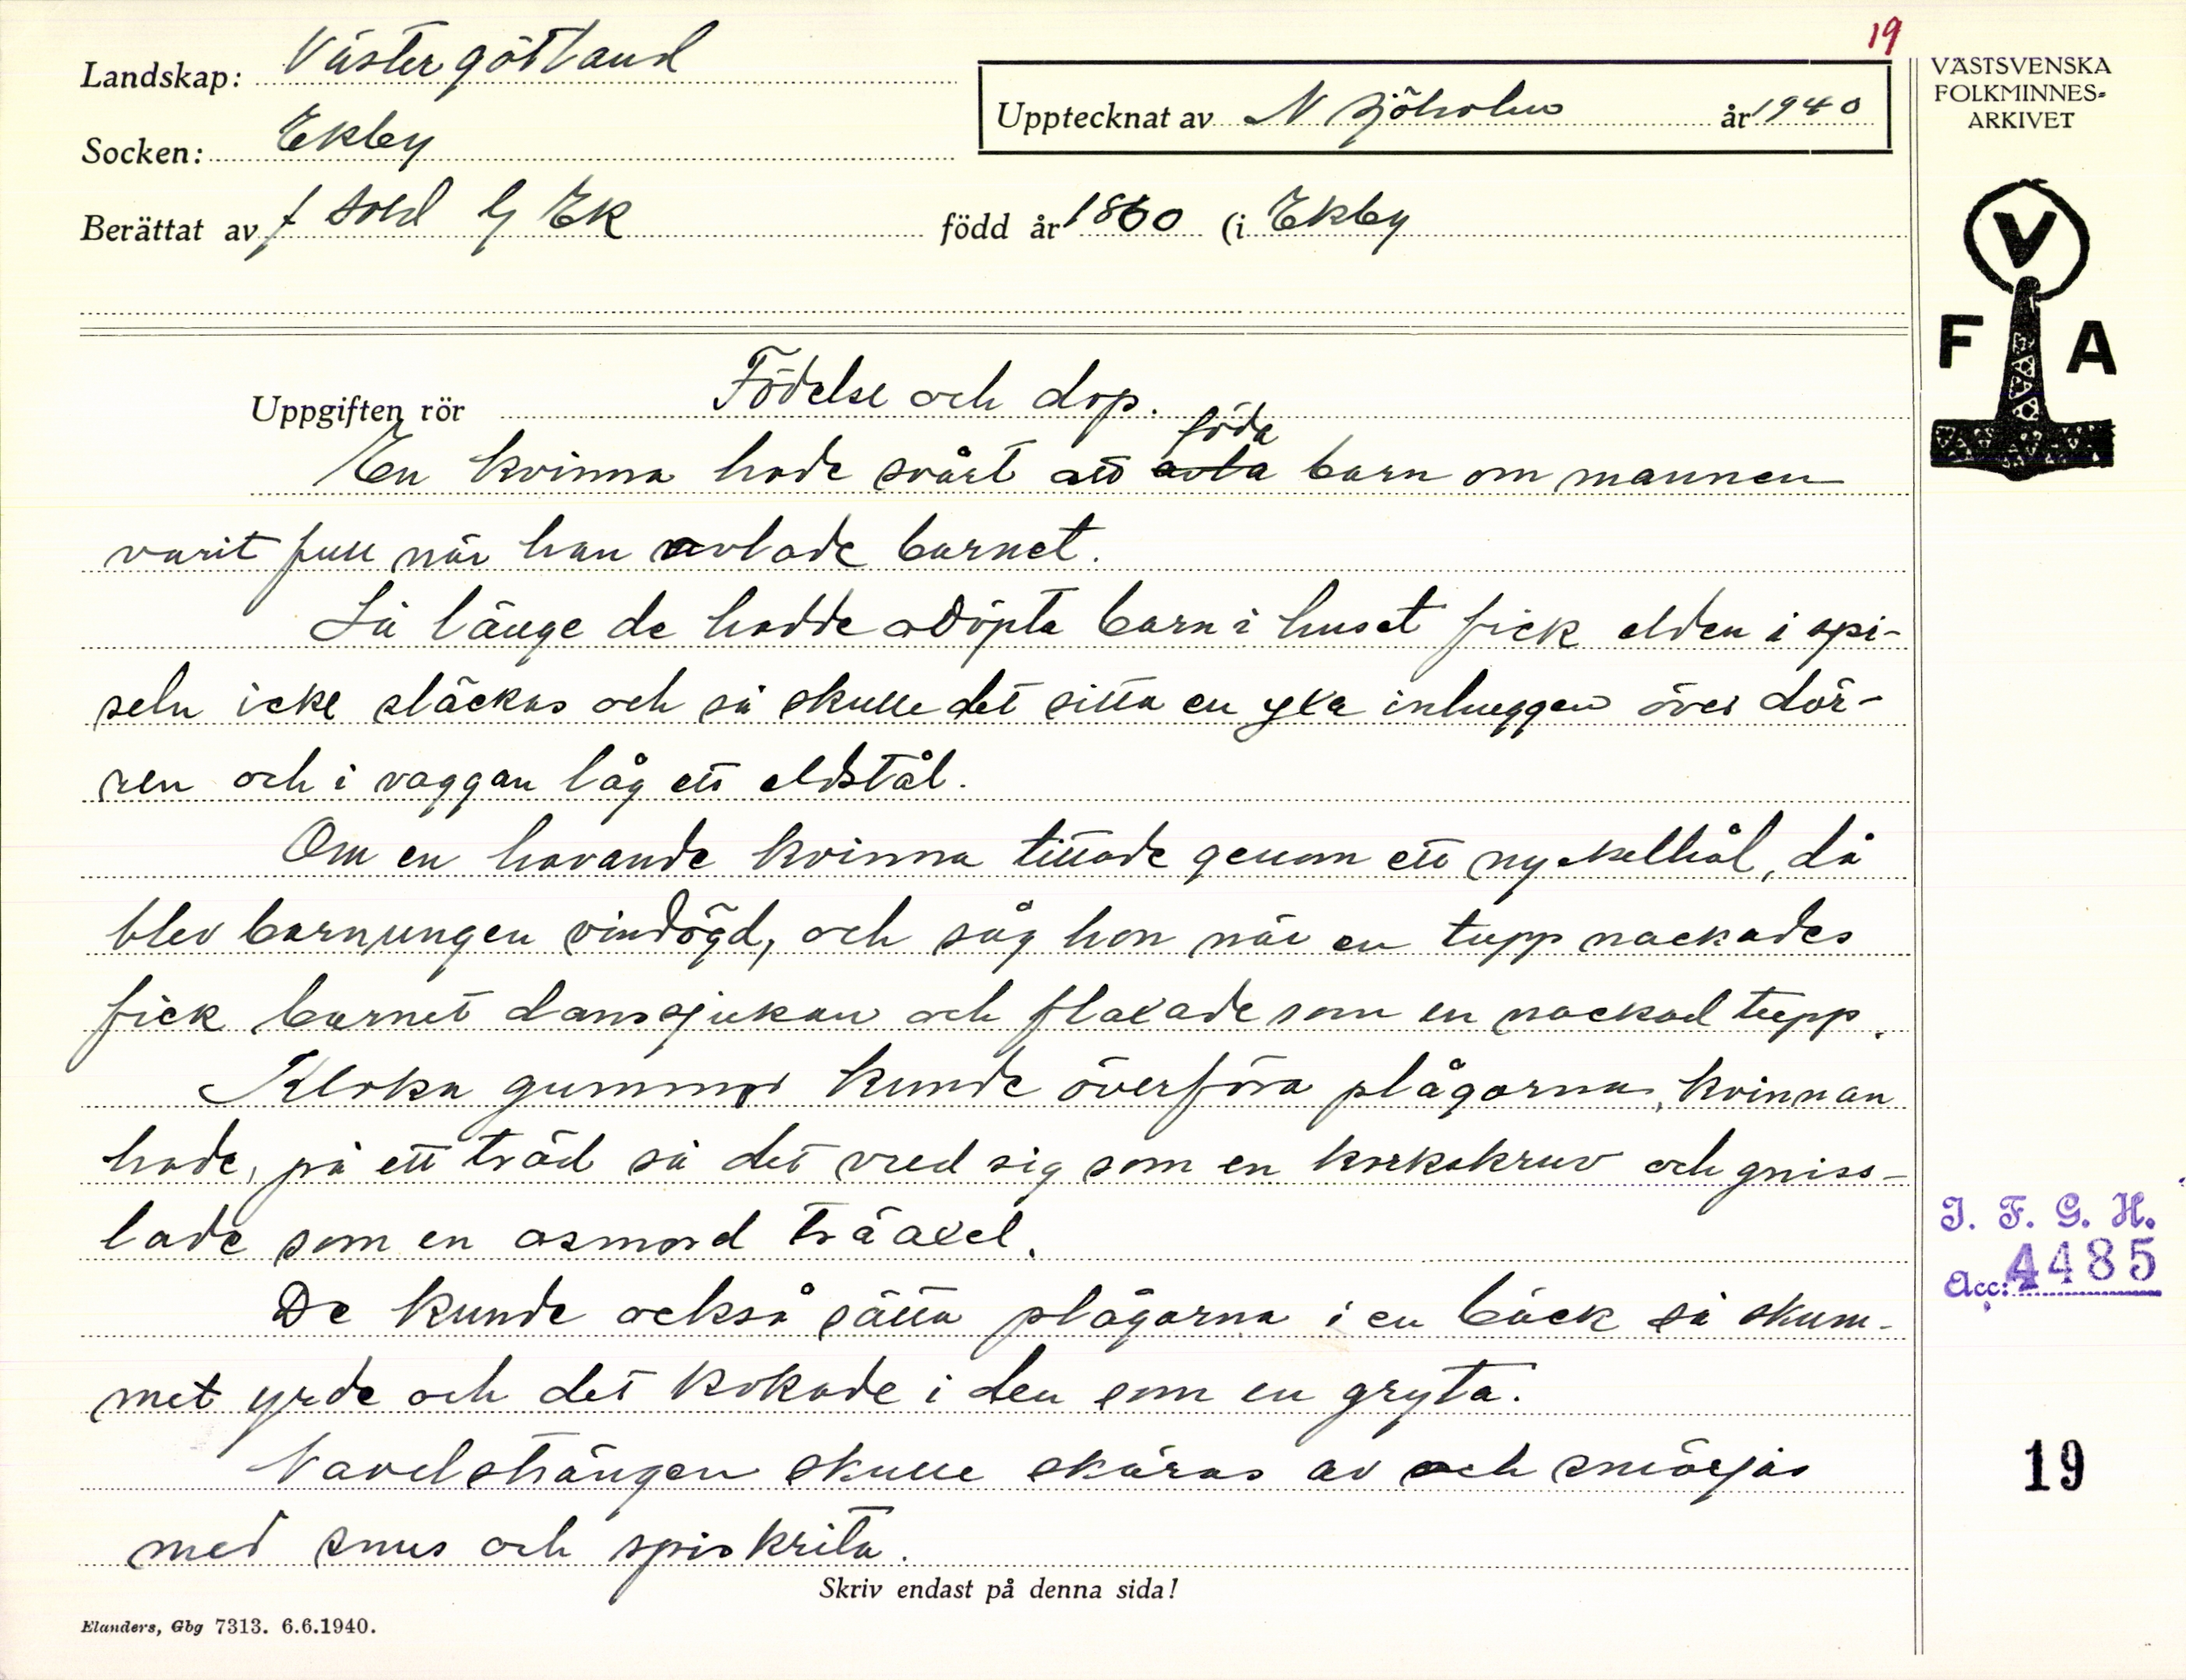 19
Landskap: Västergötland
Upptecknat av N Sjöholm år 1940
Socken: Ekby
Berättat av f sold G Ek född år 1860 (i Ekby
VÄSTSVENSKA
FOLKMINNES-
ARKIVET
V
F A
Uppgiften rör Födelse och dop.
föda
En kvinna hade svårt att avla barn om mannen
varit full när han avlade barnet.
Så länge de hadde odöpta barn i huset fick elden i spi-
seln icke släckas och så skulle det sitta en yxa inhuggen över dör-
ren och i vaggan låg ett eldstål.
Om en havande kvinna tittade genom ett nyckelhål, då
blev barnungen vindögd, och såg hon när en tupp nackades
fick barnet danssjukan och flaxade som en nackad tupp.
Kloka gummor kunde överföra plågorna, kvinnan
hade, på ett träd så det vred sig som en korkskruv och gniss-
lade som en osmord träaxel.
De kunde också sätta plågorna i en bäck så skum-
met yrde och det kokade i den som en gryta.
Navelsträngen skulle skäras av och smörjas
med snus och spiskrita.
I. F. G. H.
Acc: 4485
19
Skriv endast på denna sida!
Elanders, Gbg 7313. 6.6.1940.